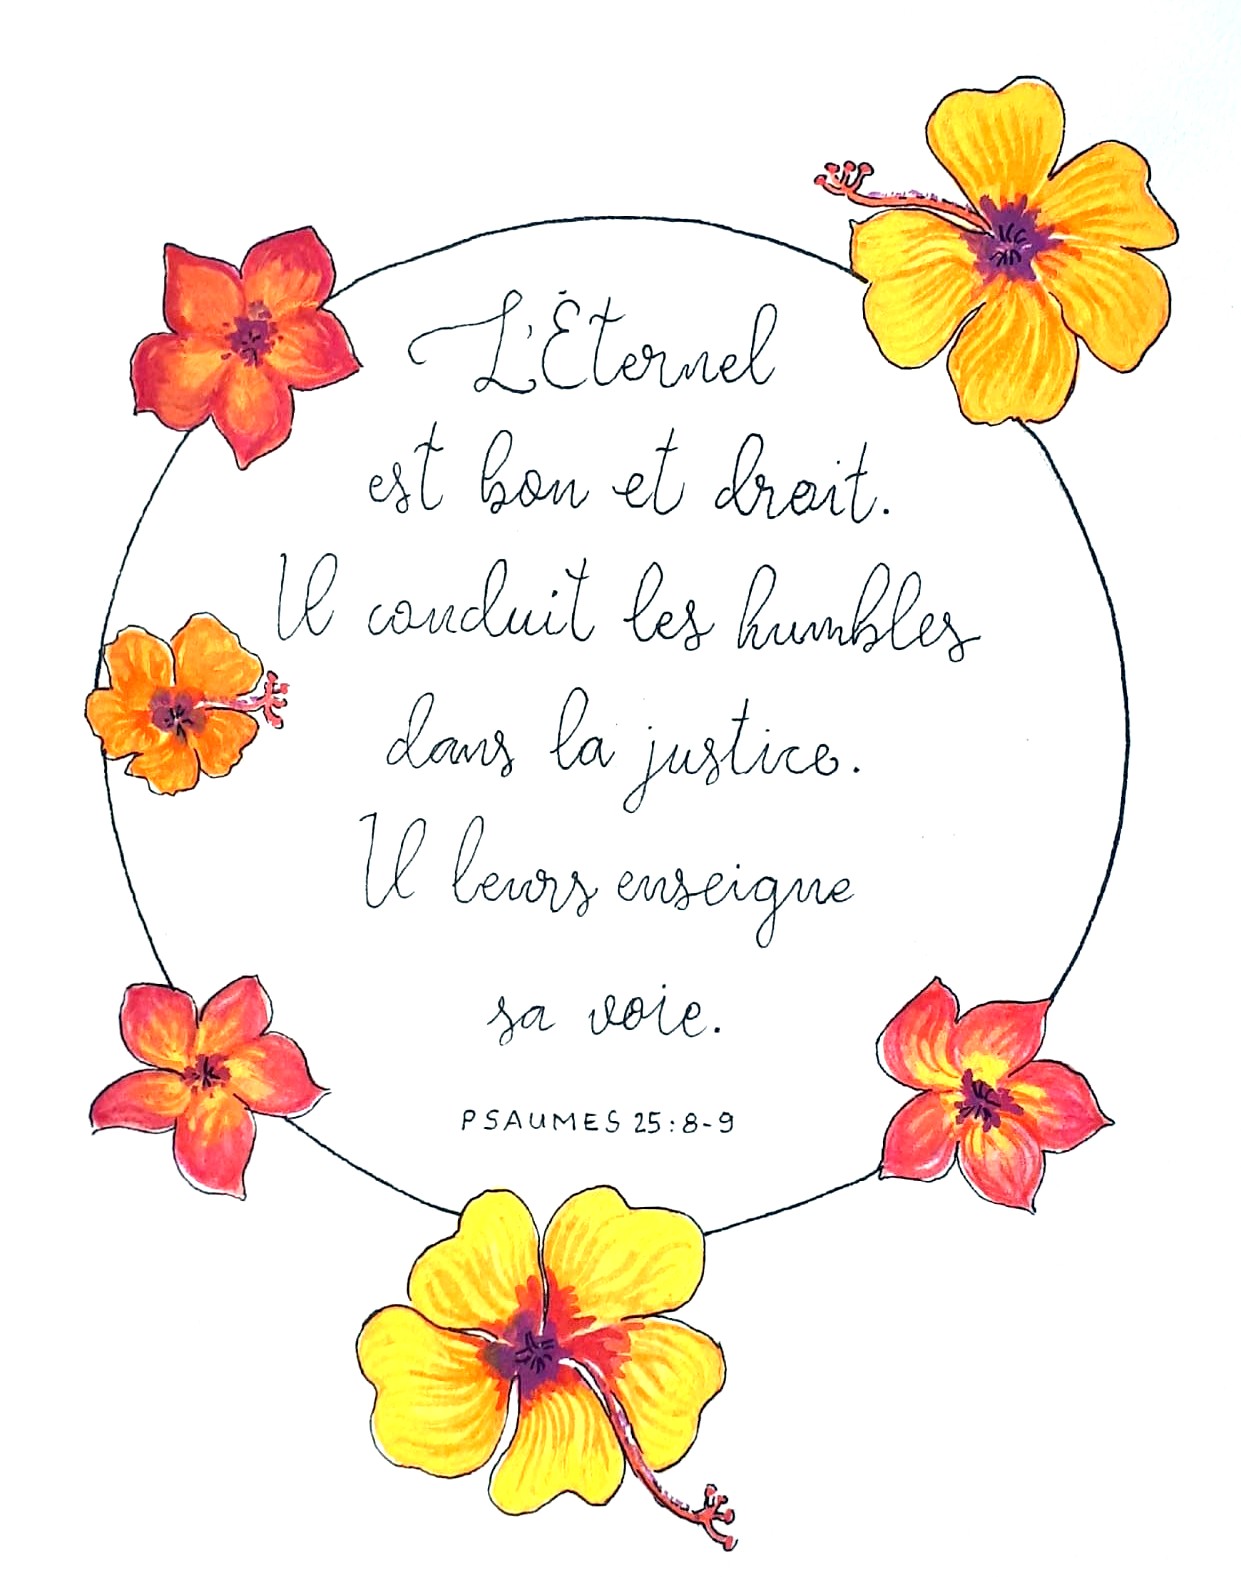 L'Éternel
est bon et droit.
Il conduit les humbles
dans la justice.
Il leurs enseigne
sa voie.
PSAUMES 25:8-9